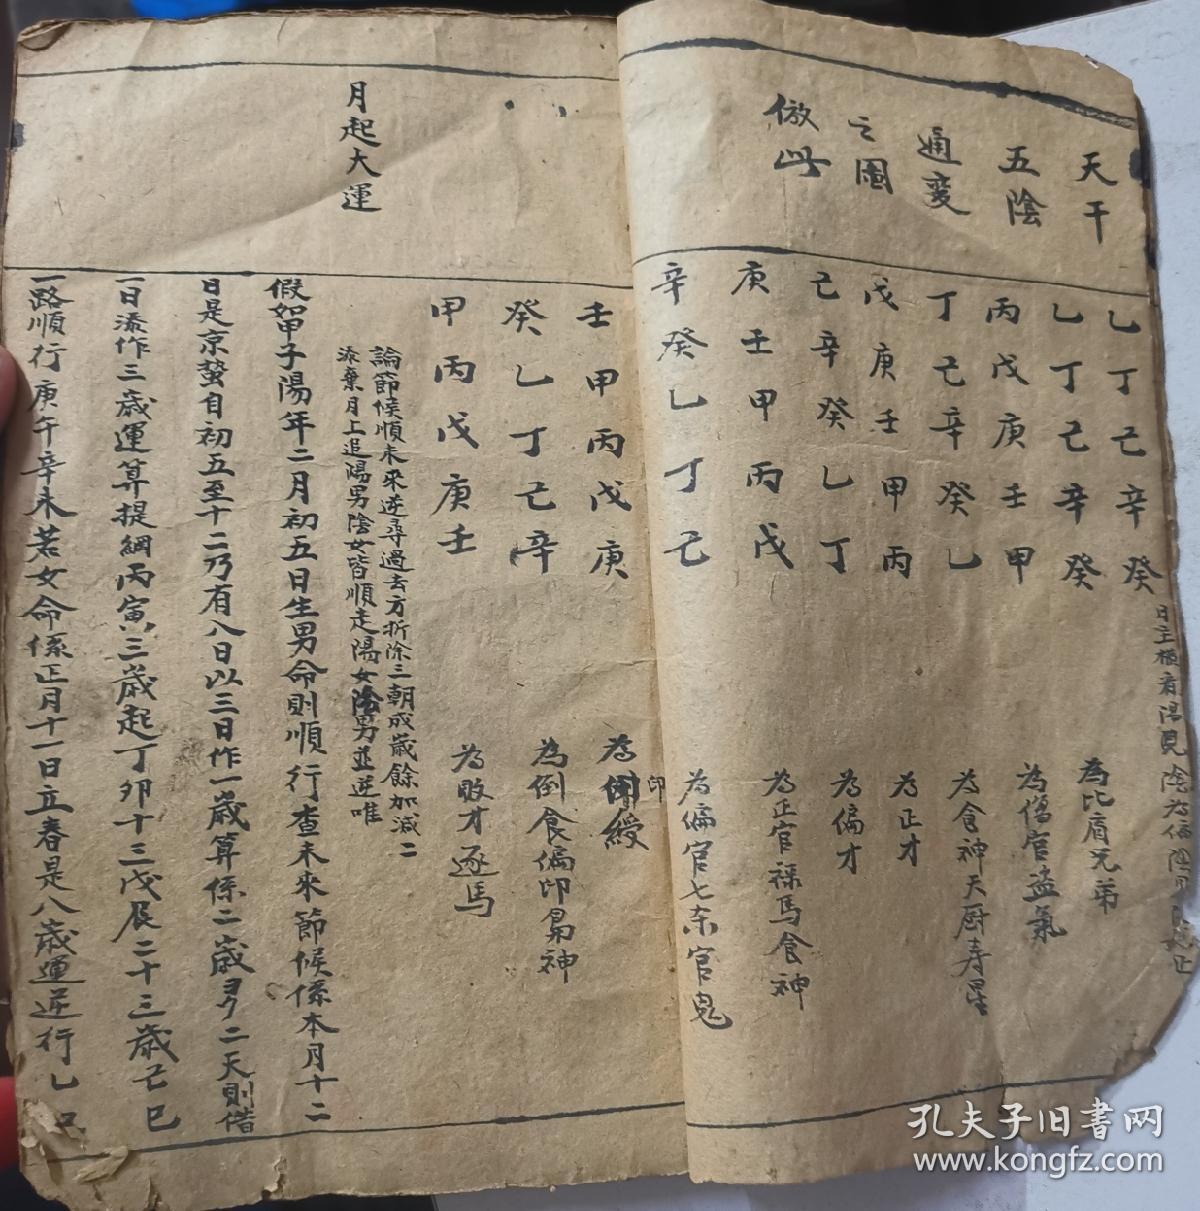 天干
五陰
通變
之圖
倣此
乙丁己辛癸
乙丁己辛癸 為比肩兄弟
丙戊庚壬甲 為傷官盗氣
丁己辛癸乙 為食神天厨寿星
戊庚壬甲丙 為正才
己辛癸乙丁 為偏才
庚壬甲丙戊 為正官祿馬食神
辛癸乙丁己 為偏官七杀官鬼
壬甲丙戊庚 為印綬
癸乙丁己辛 為倒食偏印梟神
甲丙戊庚壬 為敗才逐馬
月起大運
論節候順未來逆尋過去方折除三朝成歲餘加減二
添棄月上追陽男陰女皆順走陽女陰男並逆唯
假如甲子陽年二月初五日生男命則順行查未來節候係本月十二
日是京蟄自初五至十二乃有八日以三日作一歲算係二歲ヨク二天則借
一日添作三歲運算提綱丙寅三歲起丁卯十三戊辰二十三歲己巳
一路順行庚午辛未若女命係正月十一日立春是八歲運逆行乙
孔夫子旧書网
www.kongfz.com